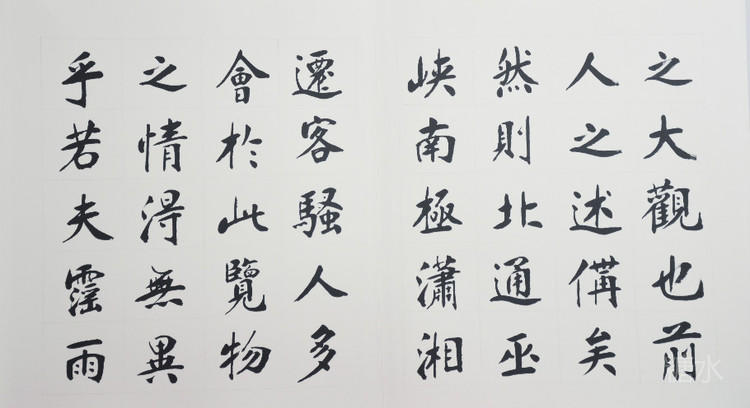 之大觀也前
人之述備矣
然則北通巫
峽南極瀟湘
遷客騷人多
會於此覽物
之情得無異
乎若夫霪雨